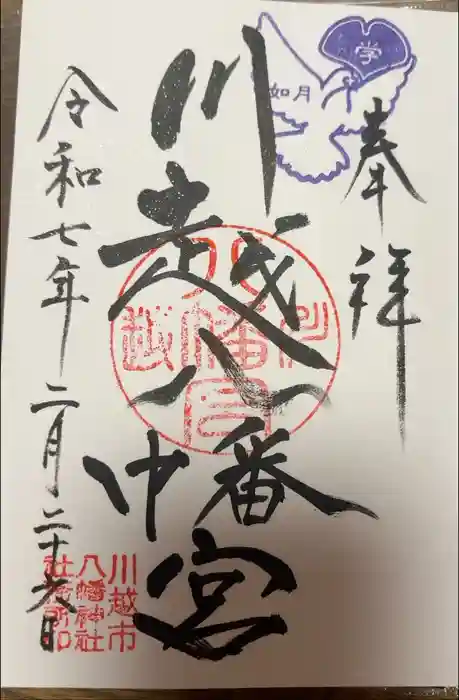 奉拝
学
如月
川越八幡宮
川越八幡宮
令和七年二月二十六日
川越市
八幡神社
社務所印